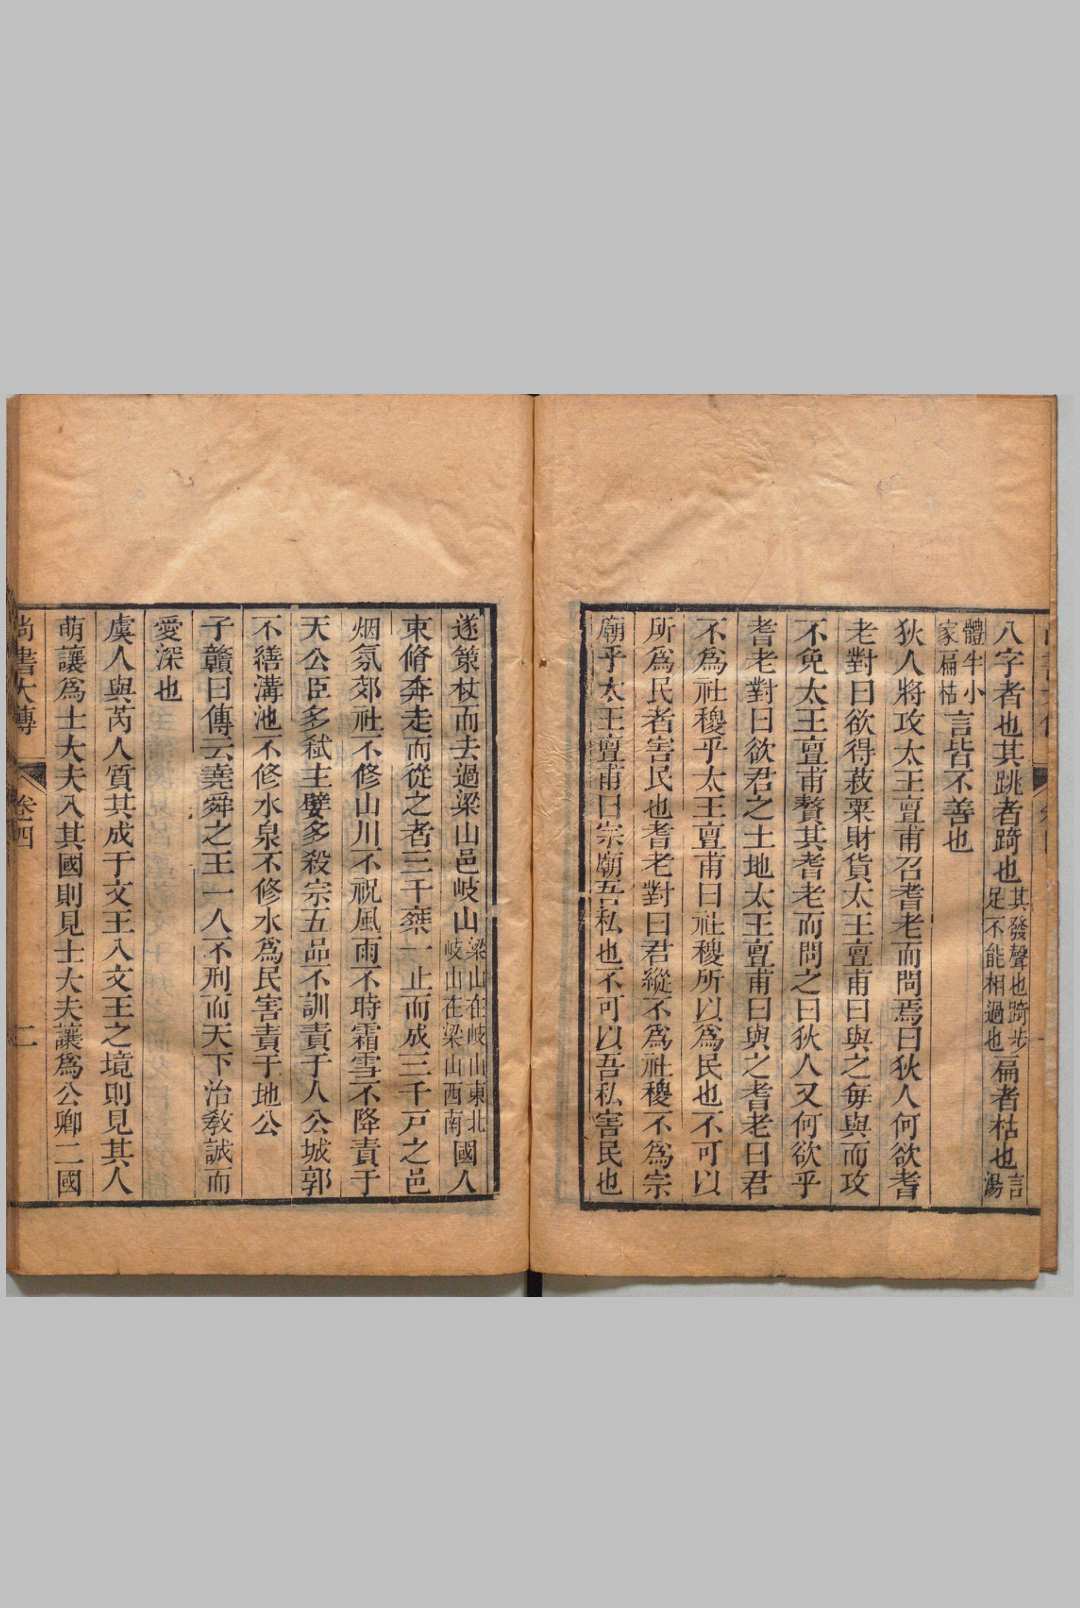 八字者也其跳者踦也其發聲也踦步足不能相過也扁者枯也言湯
體半小家扁枯言皆不善也
狄人將攻太王亶甫召耆老而問焉曰狄人何欲耆
老對曰欲得菽粟財貨太王亶甫曰與之每與而攻
不免太王亶甫贅其耆老而問之曰狄人又何欲乎
耆老對曰欲君之土地太王亶甫曰與之耆老曰君
不爲社稷乎太王亶甫曰社稷所以爲民也不可以
所爲民者害民也耆老對曰君縱不爲社稷不爲宗
廟乎太王亶甫曰宗廟吾私也不可以吾私害民也
遂策杖而去過梁山邑岐山梁山在岐山東北岐山在梁山西南國人
東脩奔走而從之者三千乘一止而成三千戸之邑
烟氛郊社不修山川不祝風雨不時霜雪不降責于
天公臣多弑主孽多殺宗五品不訓責于人公城郭
不繕溝池不修水泉不修水爲民害責于地公
子贛曰傳云堯舜之王一人不刑而天下治教誠而
愛深也
虞人與芮人質其成于文王入文王之境則見其人
萌讓爲士大夫入其國則見士大夫讓爲公卿二國
尚書大傳 卷四 二